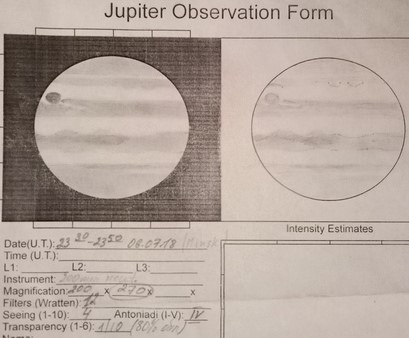 Jupiter Observation Form
Intensity Estimates
Date(U.T.): 23 30-23 50 06.07.18
Time (U.T.):
L1: L2: L3:
Instrument:
Magnification: 200 x 270 x x
Filters (Wratten): 12
Seeing (1-10): 4 Antoniadi (I-V): IV
Transparency (1-6): (80%